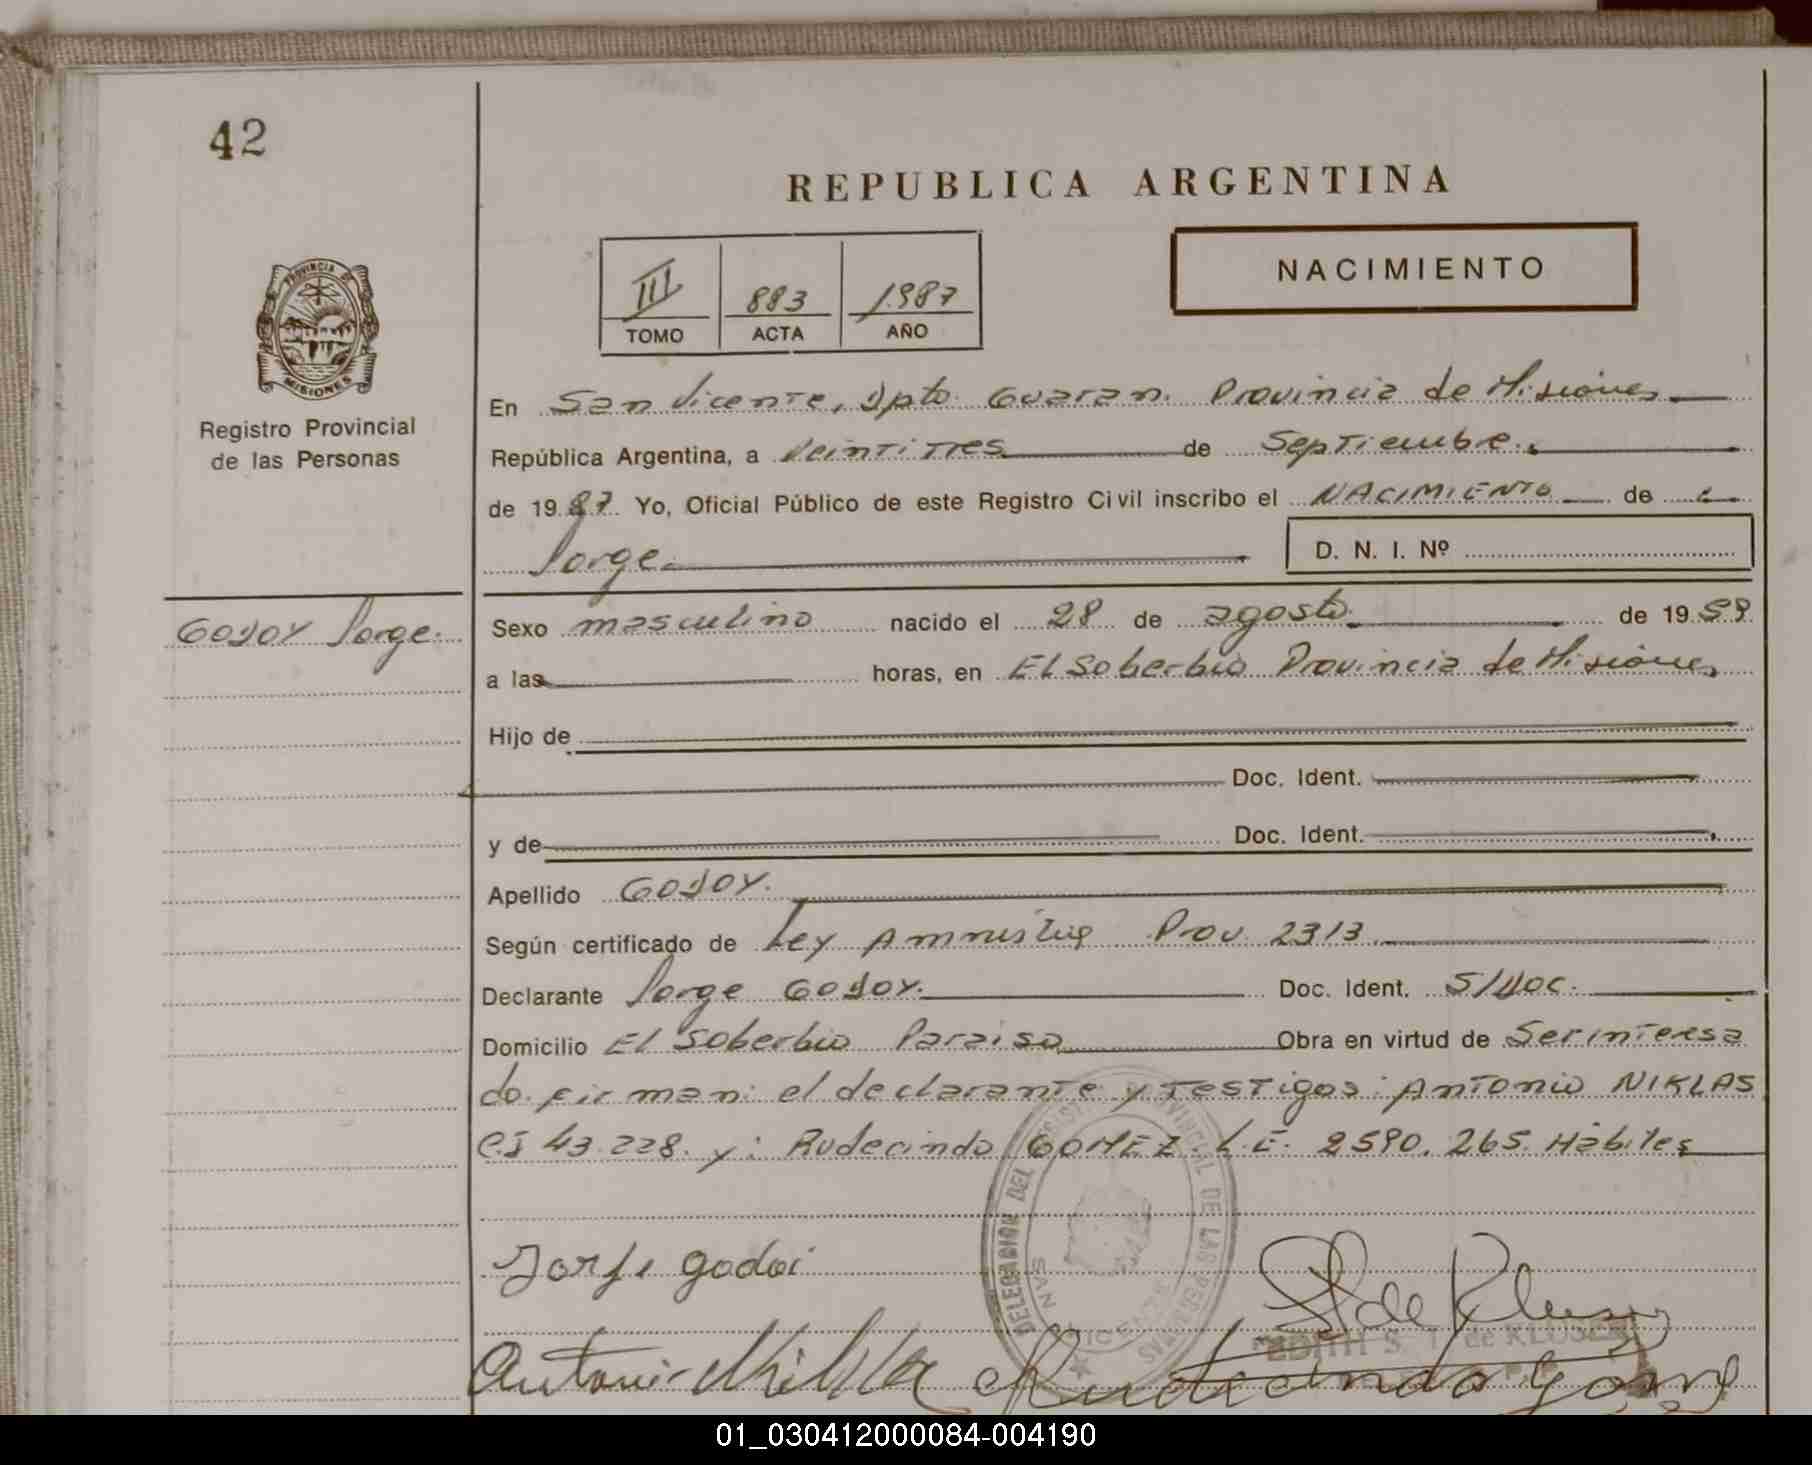 42
REPUBLICA ARGENTINA
NACIMIENTO
III 883 1987
TOMO ACTA AÑO
PROVINCIA DE
MISIONES
Registro Provincial
de las Personas
En San Vicente, Dpto. Guarani. Provincia de Misiones
República Argentina, a Veintitres de Septiembre.
de 1987. Yo, Oficial Público de este Registro Civil inscribo el NACIMIENTO de
Jorge. D. N. I. Nº
GODOY Jorge.
Sexo masculino nacido el 28 de agosto. de 1959
a las horas, en El Soberbio Provincia de Misiones
Hijo de
Doc. Ident.
y de Doc. Ident.
Apellido GODOY.
Según certificado de Ley Amnistia Prov. 2313
Declarante Jorge GODOY. Doc. Ident. S/Doc.
Domicilio El Soberbio Paraiso Obra en virtud de Ser interesa
do. firman: el declarante y testigos: Antonio NIKLAS
C.I 43.228. y: Rudecindo GOMEZ. L.E. 2590.265. Hábiles
DELEGACION DEL REGISTRO PROVINCIAL DE LAS PERSONAS
SAN VICENTE
Jorge godoi
EDITH S. T. de KLUSER
Rudecindo Gomez
01_030412000084-004190